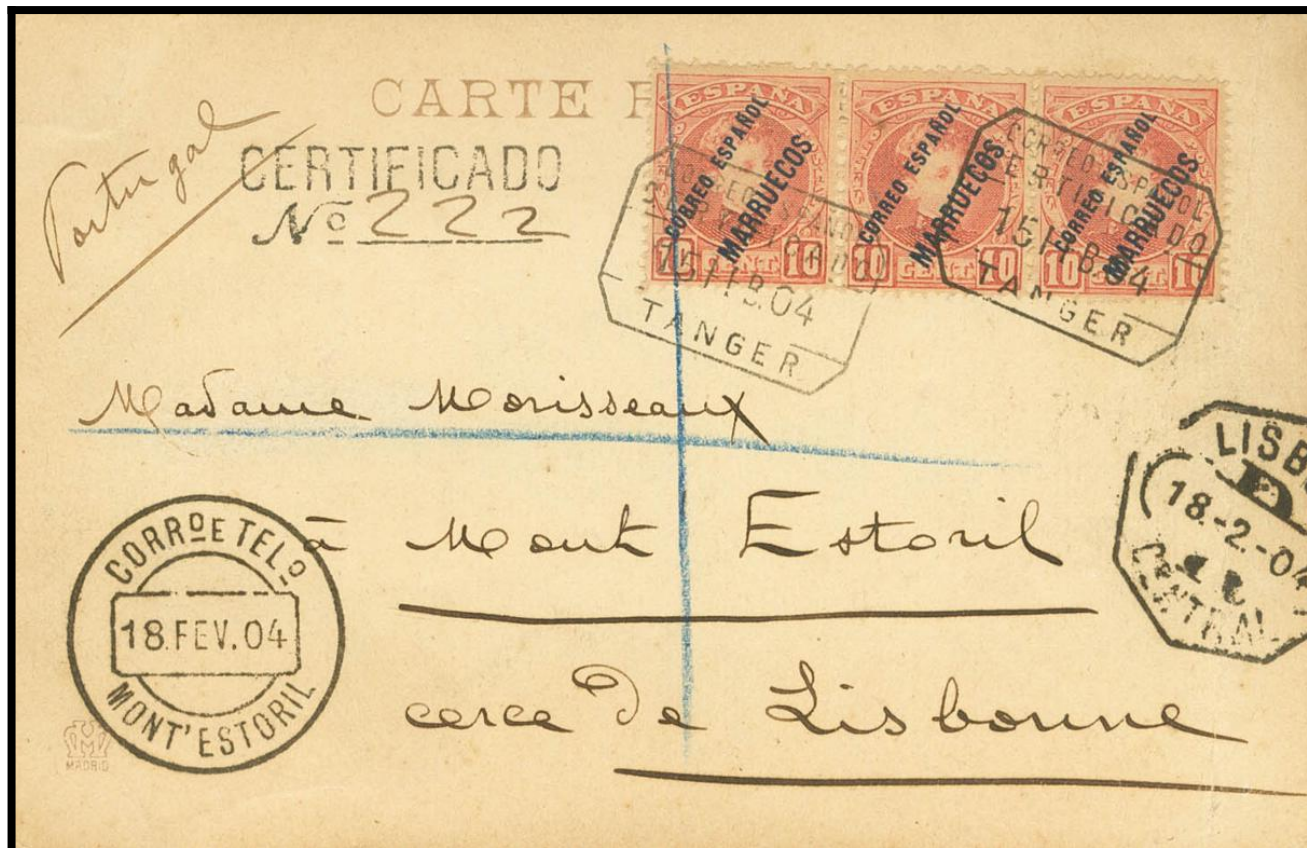 CARTE P
Portugal
CERTIFICADO
Nº 222
ESPAÑA
CORREO ESPAÑOL
MARRUECOS
10 CENT 10
ESPAÑA
CORREO ESPAÑOL
MARRUECOS
10 CENT 10
ESPAÑA
CORREO ESPAÑOL
MARRUECOS
10 CENT 10
CORREO ESPAÑOL
CERTIFICADO
15 FEB.04
TANGER
CORREO ESPAÑOL
CERTIFICADO
15 FEB.04
TANGER
Madame Morisseaux
à Mont Estoril
cerca de Lisbonne
LISB
18-2-04
CENTRAL
CORRO E TELO
18.FEV.04
MONT'ESTORIL
MADRID